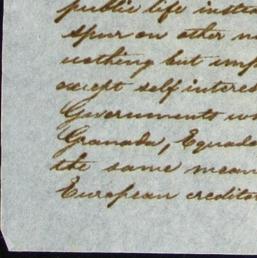 public life instea
spur on other n
nothing but imp
except self interes
Governments w
Granada, Equado
the same mean
European creditor